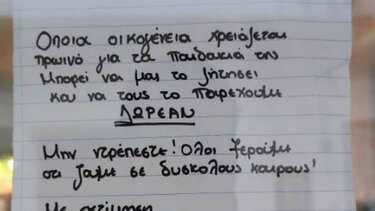 Οποια οικογένεια χρειάζεται
πρωινό για τα παιδάκια της
Μπορεί να μας το ζητήσει
και να τους το παρέχουμε
ΔΩΡΕΑΝ
Μην ντρέπεστε! Ολοι ξερουμε
οτι ζουμε σε δυσκολους καιρους!
Με εκτίμηση